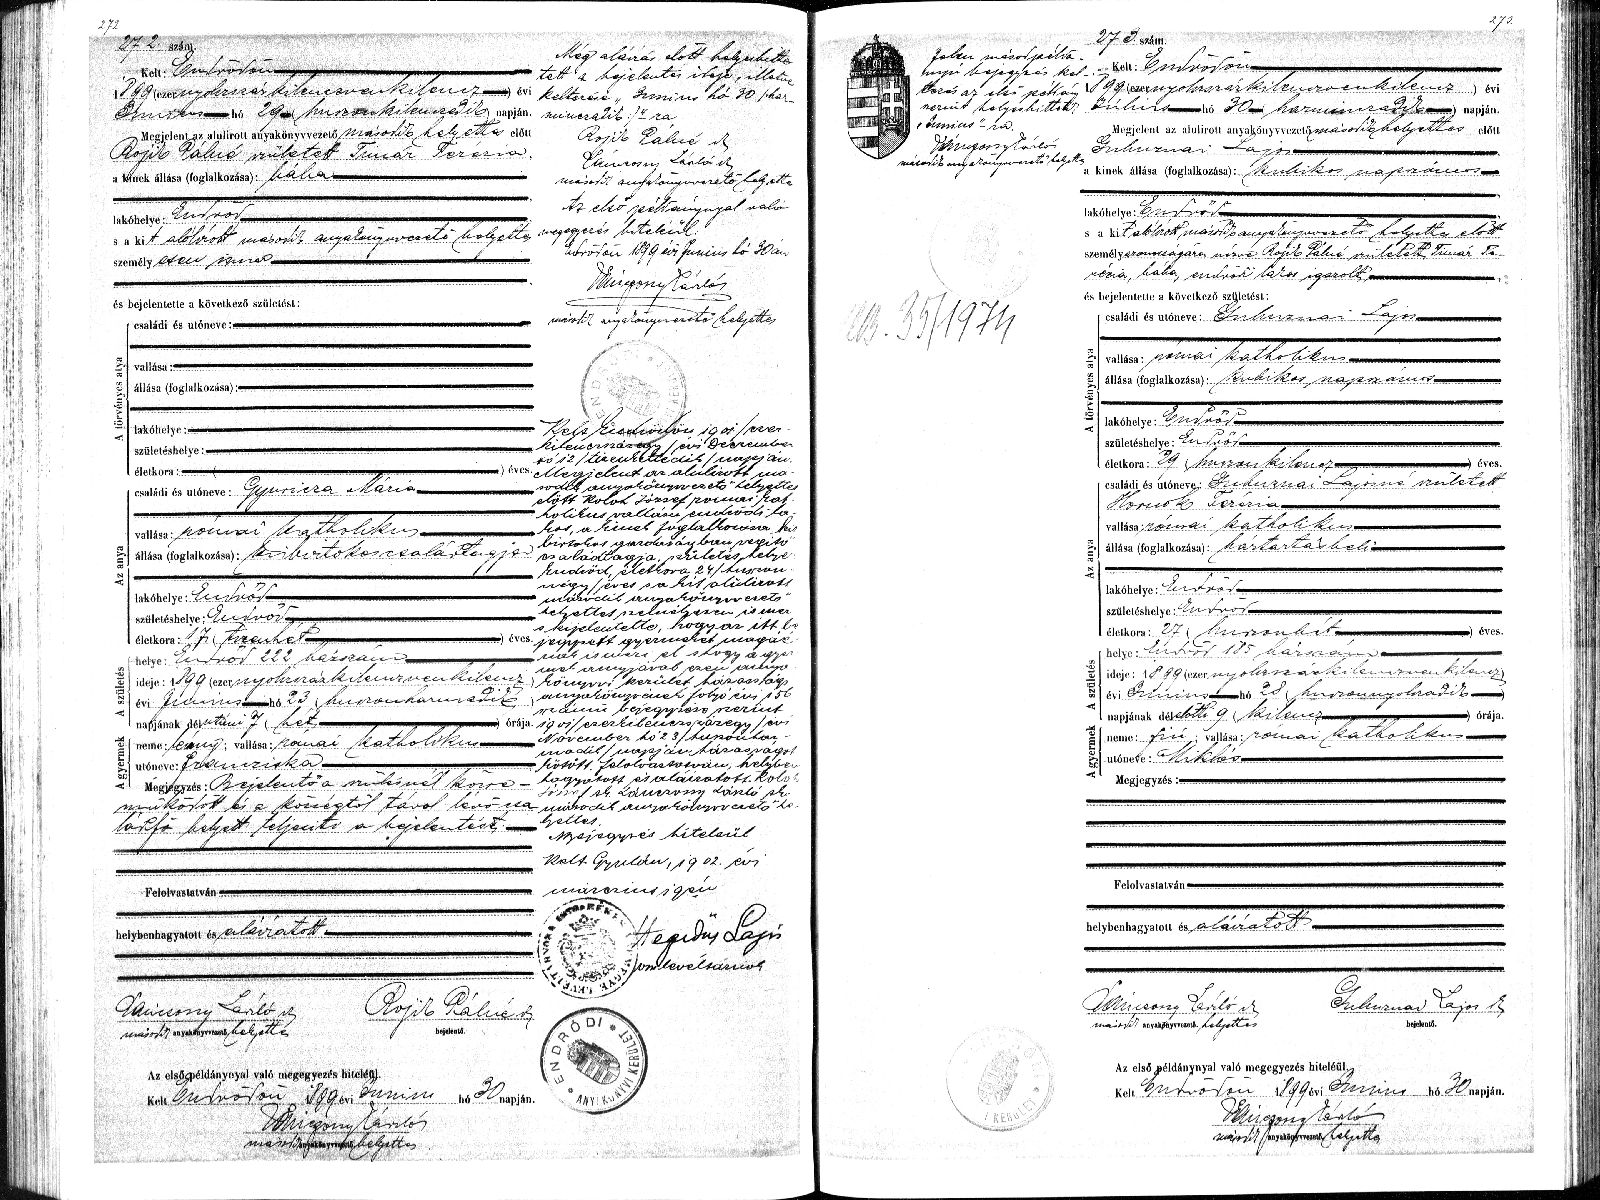 272
272. szám.
Kelt: Endrődön
1899 (ezernyolczszázkilenczvenkilencz) évi
Junius hó 29 (huszonkilenczedik) napján.
Megjelent az alulirott anyakönyvvezető második helyettes előtt
Rojik Pálné született Timár Terézia
a kinek állása (foglalkozása): bába
lakóhelye: Endrőd
s a kit alólirott második anyakönyvvezető helyettes
személyesen ismer
és bejelentette a következő születést:
A törvényes atya
családi és utóneve:
vallása:
állása (foglalkozása):
lakóhelye:
születéshelye:
életkora: ( ) éves.
Az anya
családi és utóneve: Gyuricza Mária
vallása: római katholikus
állása (foglalkozása): kisbirtokos család tagja
lakóhelye: Endrőd
születéshelye: Endrőd
életkora: 17 (tizenhét) éves.
A születés
helye: Endrőd 222 házszám
ideje: 1899 (ezernyolczszázkilenczvenkilencz)
évi Junius hó 23 (huszonharmadik)
napjának délutáni 7 (hét) órája.
A gyermek
neme: leány; vallása: római katholikus
utóneve: Franziska
Megjegyzés: Bejelentő a szülésnél közre-
működött és a községtől távol lévő
helyett teljesiti a bejelentést.
Felolvastatván
helybenhagyatott és aláiratott
Lánczony László sk
második anyakönyvvezető helyettes
Rojik Pálné sk
bejelentő.
Az első példánynyal való megegyezés hiteléül.
Kelt Endrődön 1899 évi Junius hó 30 napján.
Lánczony László
második anyakönyvvezető helyettes
Még aláirás előtt helyesbitte-
tett a bejelentés ideje, illetve
keltezése "Junius hó 30 /har-
minczadik/"-ra
Rojik Pálné sk
Lánczony László sk
második anyakönyvvezető helyettes
Az első példánynyal való
megegyezés hiteléül.
Endrődön 1899 évi Junius hó 30án
Lánczony László
második anyakönyvvezető helyettes
Kelt Endrődön, 1901 /ezer-
kilenczszázegy/ évi Deczember
hó 12 /tizenkettedik/ napján.
Megjelent az alulirott má-
sodik anyakönyvvezető helyettes
előtt Kolok József római kat-
holikus vallásu endrődi la-
kos, a kinek foglalkozása kis
birtokos gazdaságban segitő
családtagja, születés helye
Endrőd, életkora 24 /huszon-
négy/ éves s a kit alulirott
második anyakönyvvezető
helyettes személyesen ismer
s kijelentette, hogy az itt be
jegyzett gyermeket magáé-
nak ismeri el s hogy a gyer
mek anyjával ezen anya-
könyvi kerület házassági
anyakönyvének folyó évi 156
számu bejegyzése szerint
1901 /ezerkilenczszázegy/ évi
November hó 23 /huszonhar-
madik/ napján házasságot
kötött. Felolvastatván, helyben
hagyatott és aláiratott. Kolok
József sk. Lánczony László sk.
második anyakönyvvezető he-
lyettes.
A bejegyzés hiteléül
Kelt Gyulán, 1902. évi
márczius 19én
Hegedűs Lajos
ENDRŐDI * ANYAKÖNYVI KERÜLET *
273
273. szám.
Kelt: Endrődön
1899 (ezernyolczszázkilenczvenkilencz) évi
Junius hó 30 (harminczadik) napján.
Megjelent az alulirott anyakönyvvezető második helyettes előtt
Gubuznai Lajos
a kinek állása (foglalkozása): kubikos napszámos
lakóhelye: Endrőd
s a kit alólirott második anyakönyvvezető helyettes előtt
személyazonosságára nézve Rojik Pálné született Timár Te-
rézia, bába, endrődi lakos igazolt
és bejelentette a következő születést:
A törvényes atya
családi és utóneve: Gubuznai Lajos
vallása: római katholikus
állása (foglalkozása): kubikos napszámos
lakóhelye: Endrőd
születéshelye: Endrőd
életkora: 29 (huszonkilencz) éves.
Az anya
családi és utóneve: Gubuznai Lajosné született
Hornok Terézia
vallása: római katholikus
állása (foglalkozása): háztartásbeli
lakóhelye: Endrőd
születéshelye: Endrőd
életkora: 27 (huszonhét) éves.
A születés
helye: Endrőd 185 házszám
ideje: 1899 (ezernyolczszázkilenczvenkilencz)
évi Junius hó 28 (huszonnyolczadik)
napjának délelőtti 9 (kilencz) órája.
A gyermek
neme: fiú; vallása: római katholikus
utóneve: Miklós
Megjegyzés:
Felolvastatván
helybenhagyatott és aláiratott
Lánczony László sk
második anyakönyvvezető helyettes
Gubuznai Lajos sk
bejelentő.
Az első példánynyal való megegyezés hiteléül.
Kelt Endrődön 1899 évi Junius hó 30 napján.
Lánczony László
második anyakönyvvezető helyettes
Jelen másodpéldá-
nyu bejegyzés kel-
tezése az első példány
szerint helyesbittetett
"Junius"-ra.
Lánczony László
második anyakönyvvezető helyettes
35/1974